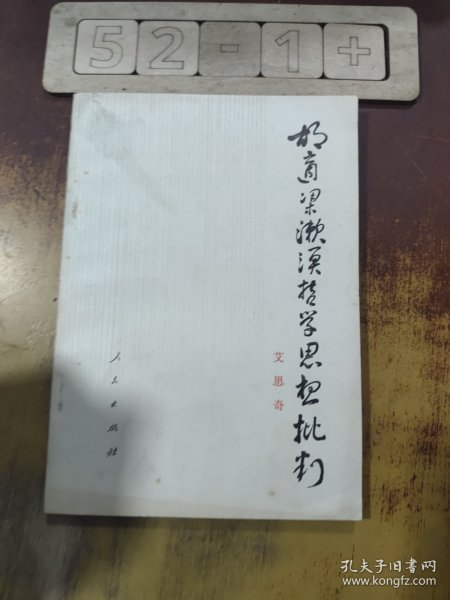 52-1+
胡适梁漱溟哲学思想批判
艾思奇
人民出版社
孔夫子旧书网
www.kongfz.com